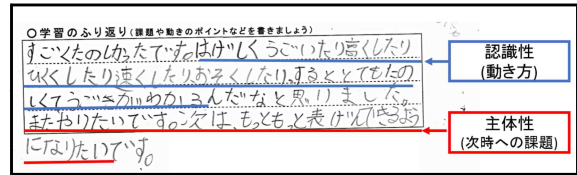 ○学習のふり返り(課題や動きのポイントなどを書きましょう)
すごくたのしかったです。はげしくうごいたり高くしたり
ひくくしたり速くしたりおそくしたり、するととてもたの
しくてうごきがわかるんだなと思いました。
またやりたいです。次は、もっともっと表げんできるよう
になりたいです。
認識性
(動き方)
主体性
(次時への課題)